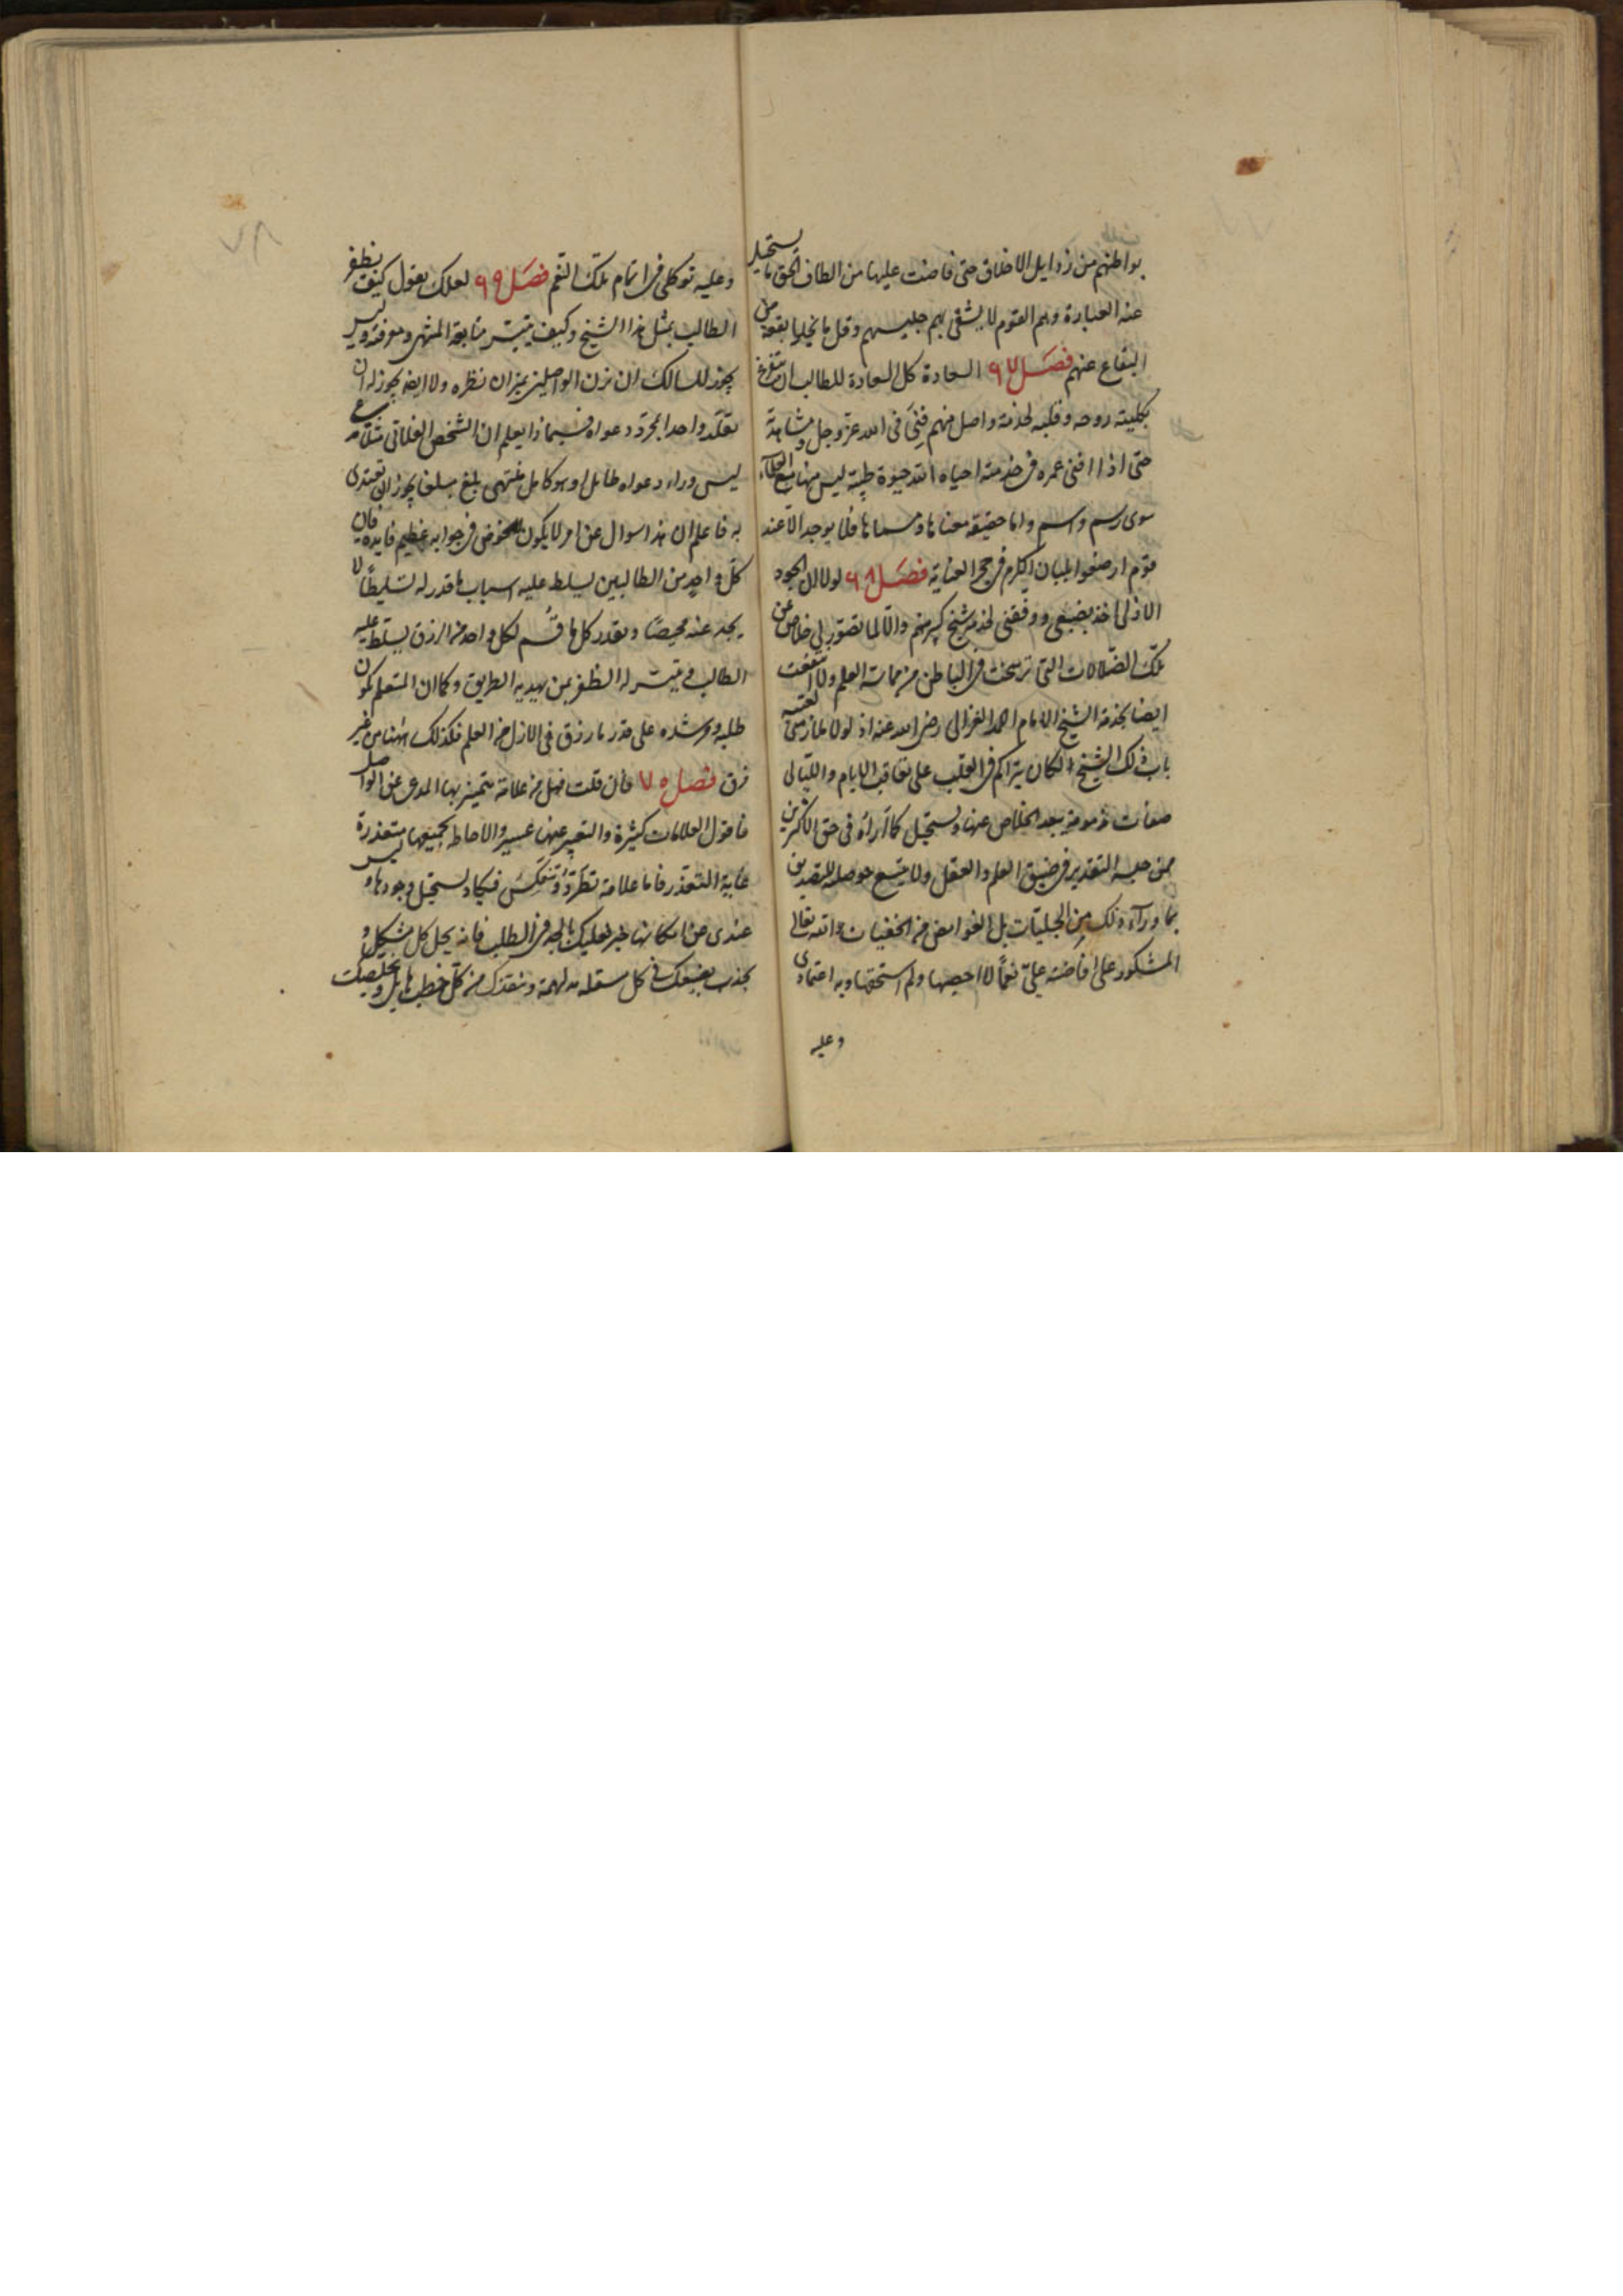 بواطنهم من رذايل الاخلاق حتى فاضت عليها من الطاف الحق ما يستحيل
عنه العبارة وهم القوم لا يشقى بهم جليسهم وقل ما يخلوا بقعة من
البقاع عنهم فصل ٦٧ السعادة كل السعادة للطالب ان يتفرغ
بكليته روحه وقلبه لخدمة واصل منهم فنى فى الله عز وجل ومشاهدة
حتى اذا افنى عمره فى خدمته احياه الله حيوة طيبة ليس منها مع العلماء
سوى رسم واسم واما حقيقة معناها ومسماها فلا يوجد الا عند
قوم ارضعوا بلبان الكرم فى حجر العناية فصل ٦٨ لولا ان الجود
الازلى اخذ بضبعى ووفقنى لخدمة شيخ كبير منهم والا لما تصور لى خلاص من
تلك الضلالات التى ترسخت فى الباطن من ممارسة العلم ولا انتفعت
ايضا بخدمة الشيخ الامام احمد الغزالى رضى الله عنه اذ لولا ملازمتى لعتبة
باب ذلك الشيخ لكان يتراكم فى القلب على تعاقب الايام والليالى
صفات مذمومة يبعد الخلاص عنها ويستحيل كما اراه فى حق الاكثرين
ممن حبسه التقدير فى ضيق العلم والعقل ولا يتسع حوصلته للتصديق
بما وراء ذلك من الجليات بل الغوامض من الخفيات والله تعالى
المشكور على افاضته على نعما لا احصيها ولم استحقها وبه اعتمادى
وعليه
وعليه توكلى فى اتمام تلك النعم فصل ٦٩ لعلك تقول كيف يظفر
الطالب بمثل هذا الشيخ وكيف يتيسر متابعة المنتهى ومعرفته وليس
يجوز للسالك ان يزن الواصلين بميزان نظره ولا ايضا يجوز له ان
يقلد واحدا بمجرد دعواه فبماذا يعلم ان الشخص الفلانى مثلا مدع
ليس وراء دعواه طايل او هو كامل منتهى بلغ مبلغا يجوز ان يقتدى
به فاعلم ان هذا سوال عن امر لا يكون للخوض فى جوابه عظيم فايدة فان
كل واحد من الطالبين يسلط عليه اسباب ما قدر له تسليطا لا
يجد عنه محيصا وبقدر كل ما قسم لكل واحد من الرزق يسلط عليه
الطالب فيتيسر له الظفر بمن يهديه الطريق وكما ان المتعلم يكون
طلبه ومرشده على قدر ما رزق فى الازل من العلم فكذلك ههنا من غير
فرق فصل ٧٠ فان قلت فهل من علامة يتميز بها المدعى عن الواصل
فاقول العلامات كثيرة والتعبير عنها عسير والاحاطة بجميعها متعذرة
غاية التعذر فاما علامة تطرد وتنعكس فيكاد يستحيل وجودها وليس
عندى من امكانها خبر فعليك بالجد فى الطلب فانه يحل كل مشكل و
يجذب بضبعك فى كل مدلهمة وينقذك من كل خطب هايل ويخلصك